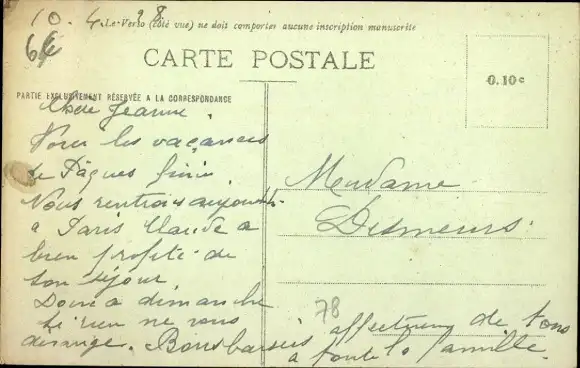 10. 4. 28
Le Verso (côté vue) ne doit comporter aucune inscription manuscrite
64
CARTE POSTALE
0.10c
PARTIE EXCLUSIVEMENT RÉSERVÉE A LA CORRESPONDANCE
Chère Jeanne.
Voici les vacances
de Pâques finies.
Nous rentrons aujourd'
à Paris Claude a
bien profité de
son séjour.
Donc a dimanche
si rien ne vous
dérange. Bons baisers affectueux de tous
a toute la famille.
Madame
Desmeurs.
78